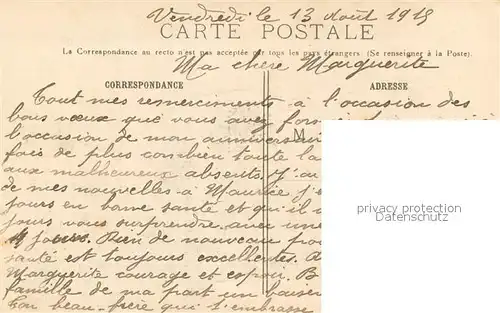 Vendredi le 13 Août 1915
CARTE POSTALE
La Correspondance au recto n'est pas acceptée par tous les pays étrangers. (Se renseigner à la Poste).
Ma chère Marguerite
CORRESPONDANCE
ADRESSE
Tout mes remerciments à l'occasion des
bons vœux que vous avez
l'occasion de mon anniversaire
M
fois de plus combien toute la
aux malheureux absents. J'
de mes nouvelles à Maurice j'
jours en bonne santé et qu'il
jours vous surprendre avec une
jours. Rien de nouveau
santé est toujours excellente.
Marguerite courage et espoir. B
famille de ma part un baiser
ton beau-frère qui t'embrasse
privacy protection
Datenschutz